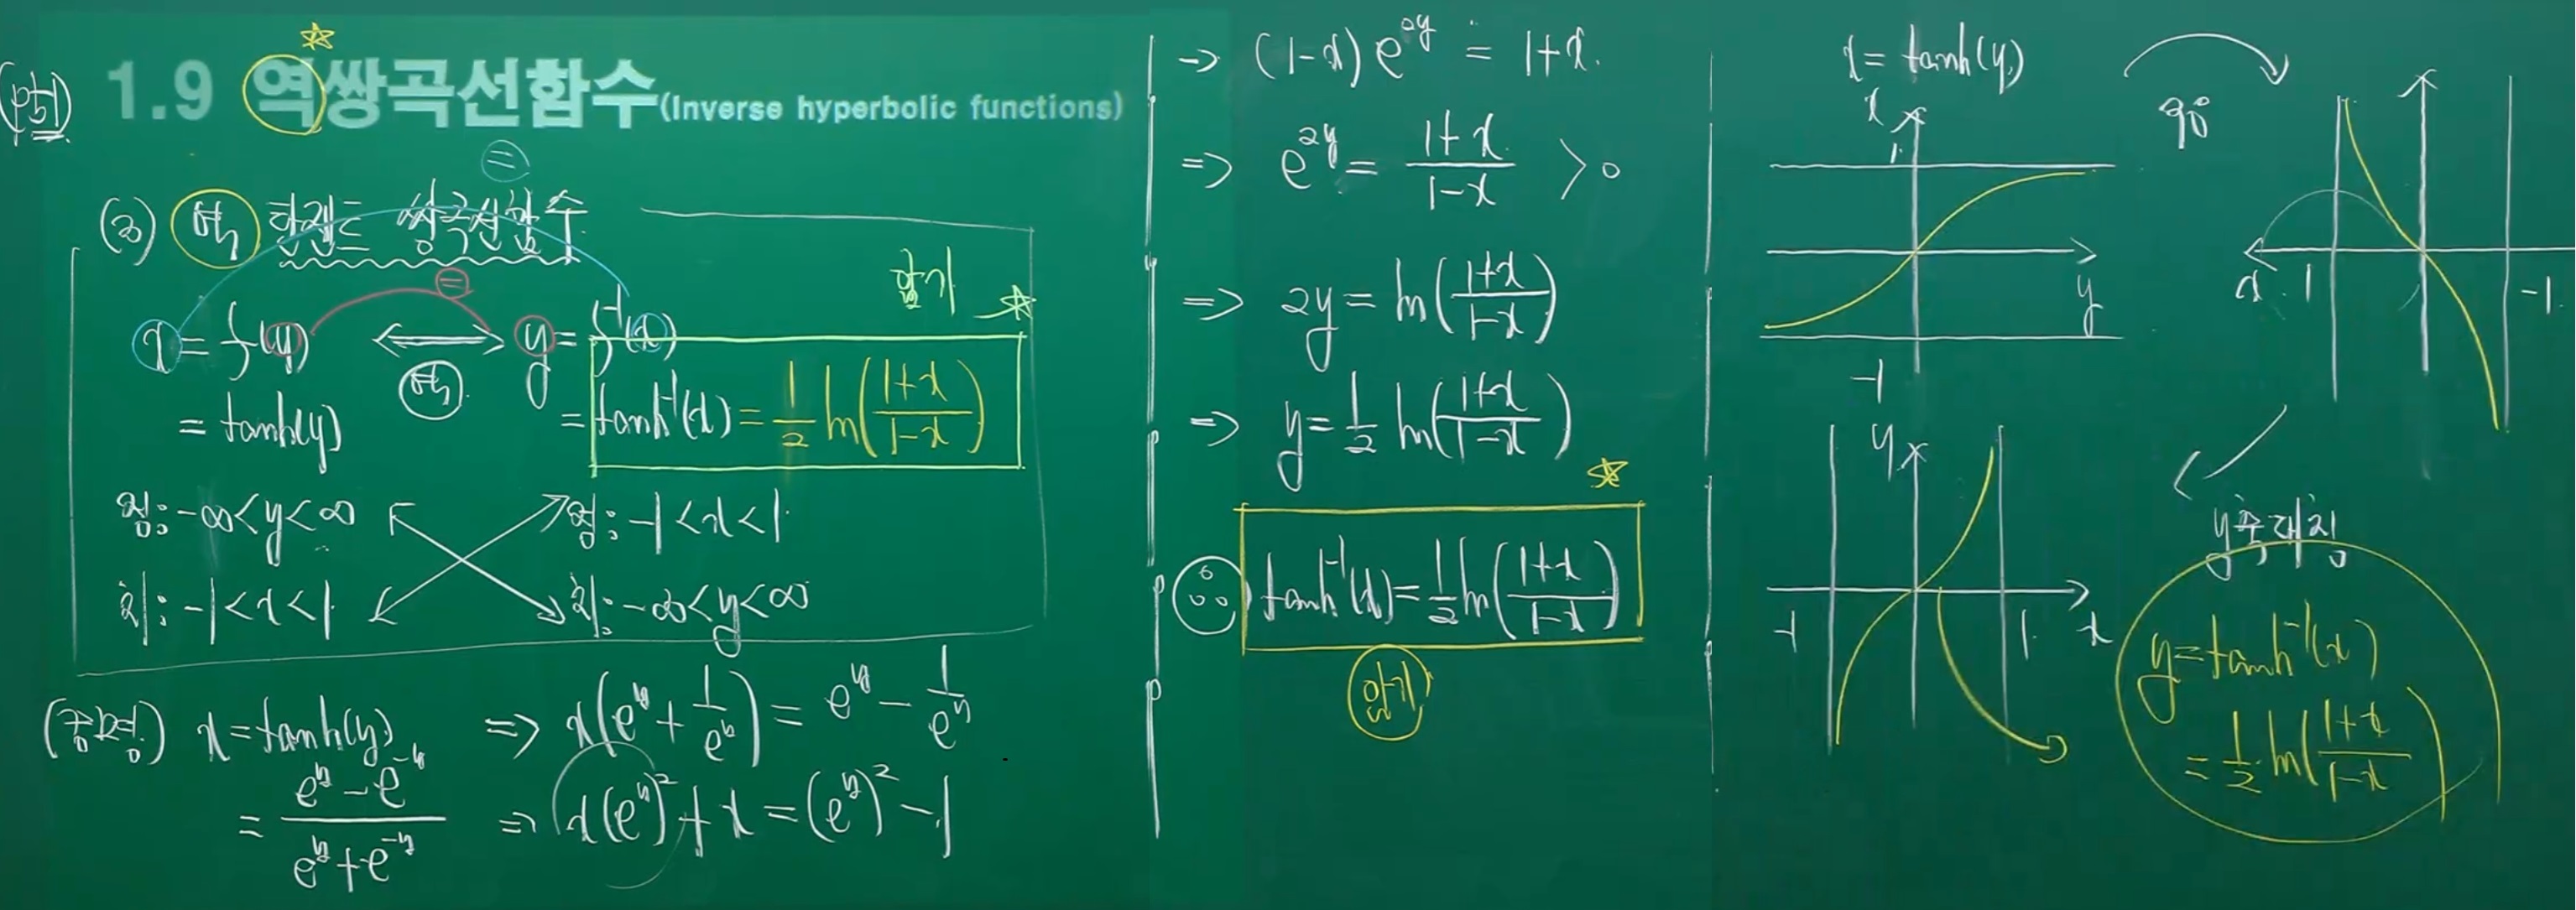 (p51)
1.9 역쌍곡선함수(Inverse hyperbolic functions)
(3) 역 탄젠트 쌍곡선함수
x = f(y) ⟷ y = f⁻¹(x)
역
암기
= tanh(y)
= tanh⁻¹(x) = 1/2 ln((1+x)/(1-x))
정: -∞<y<∞
정: -1<x<1
치: -1<x<1
치: -∞<y<∞
x = tanh(y)
= (e^y - e^-y)/(e^y + e^-y)
⇒ x(e^y + 1/e^y) = e^y - 1/e^y
⇒ x(e^y)² + x = (e^y)² - 1
→ (1-x)e^2y = 1+x
⇒ e^2y = (1+x)/(1-x) > 0
⇒ 2y = ln((1+x)/(1-x))
⇒ y = 1/2 ln((1+x)/(1-x))
∴ tanh⁻¹(x) = 1/2 ln((1+x)/(1-x))
암기
x = tanh(y)
90°
x
1
y
-1
x 1 -1
y축 대칭
y
-1 1 x
y = tanh⁻¹(x)
= 1/2 ln((1+x)/(1-x))